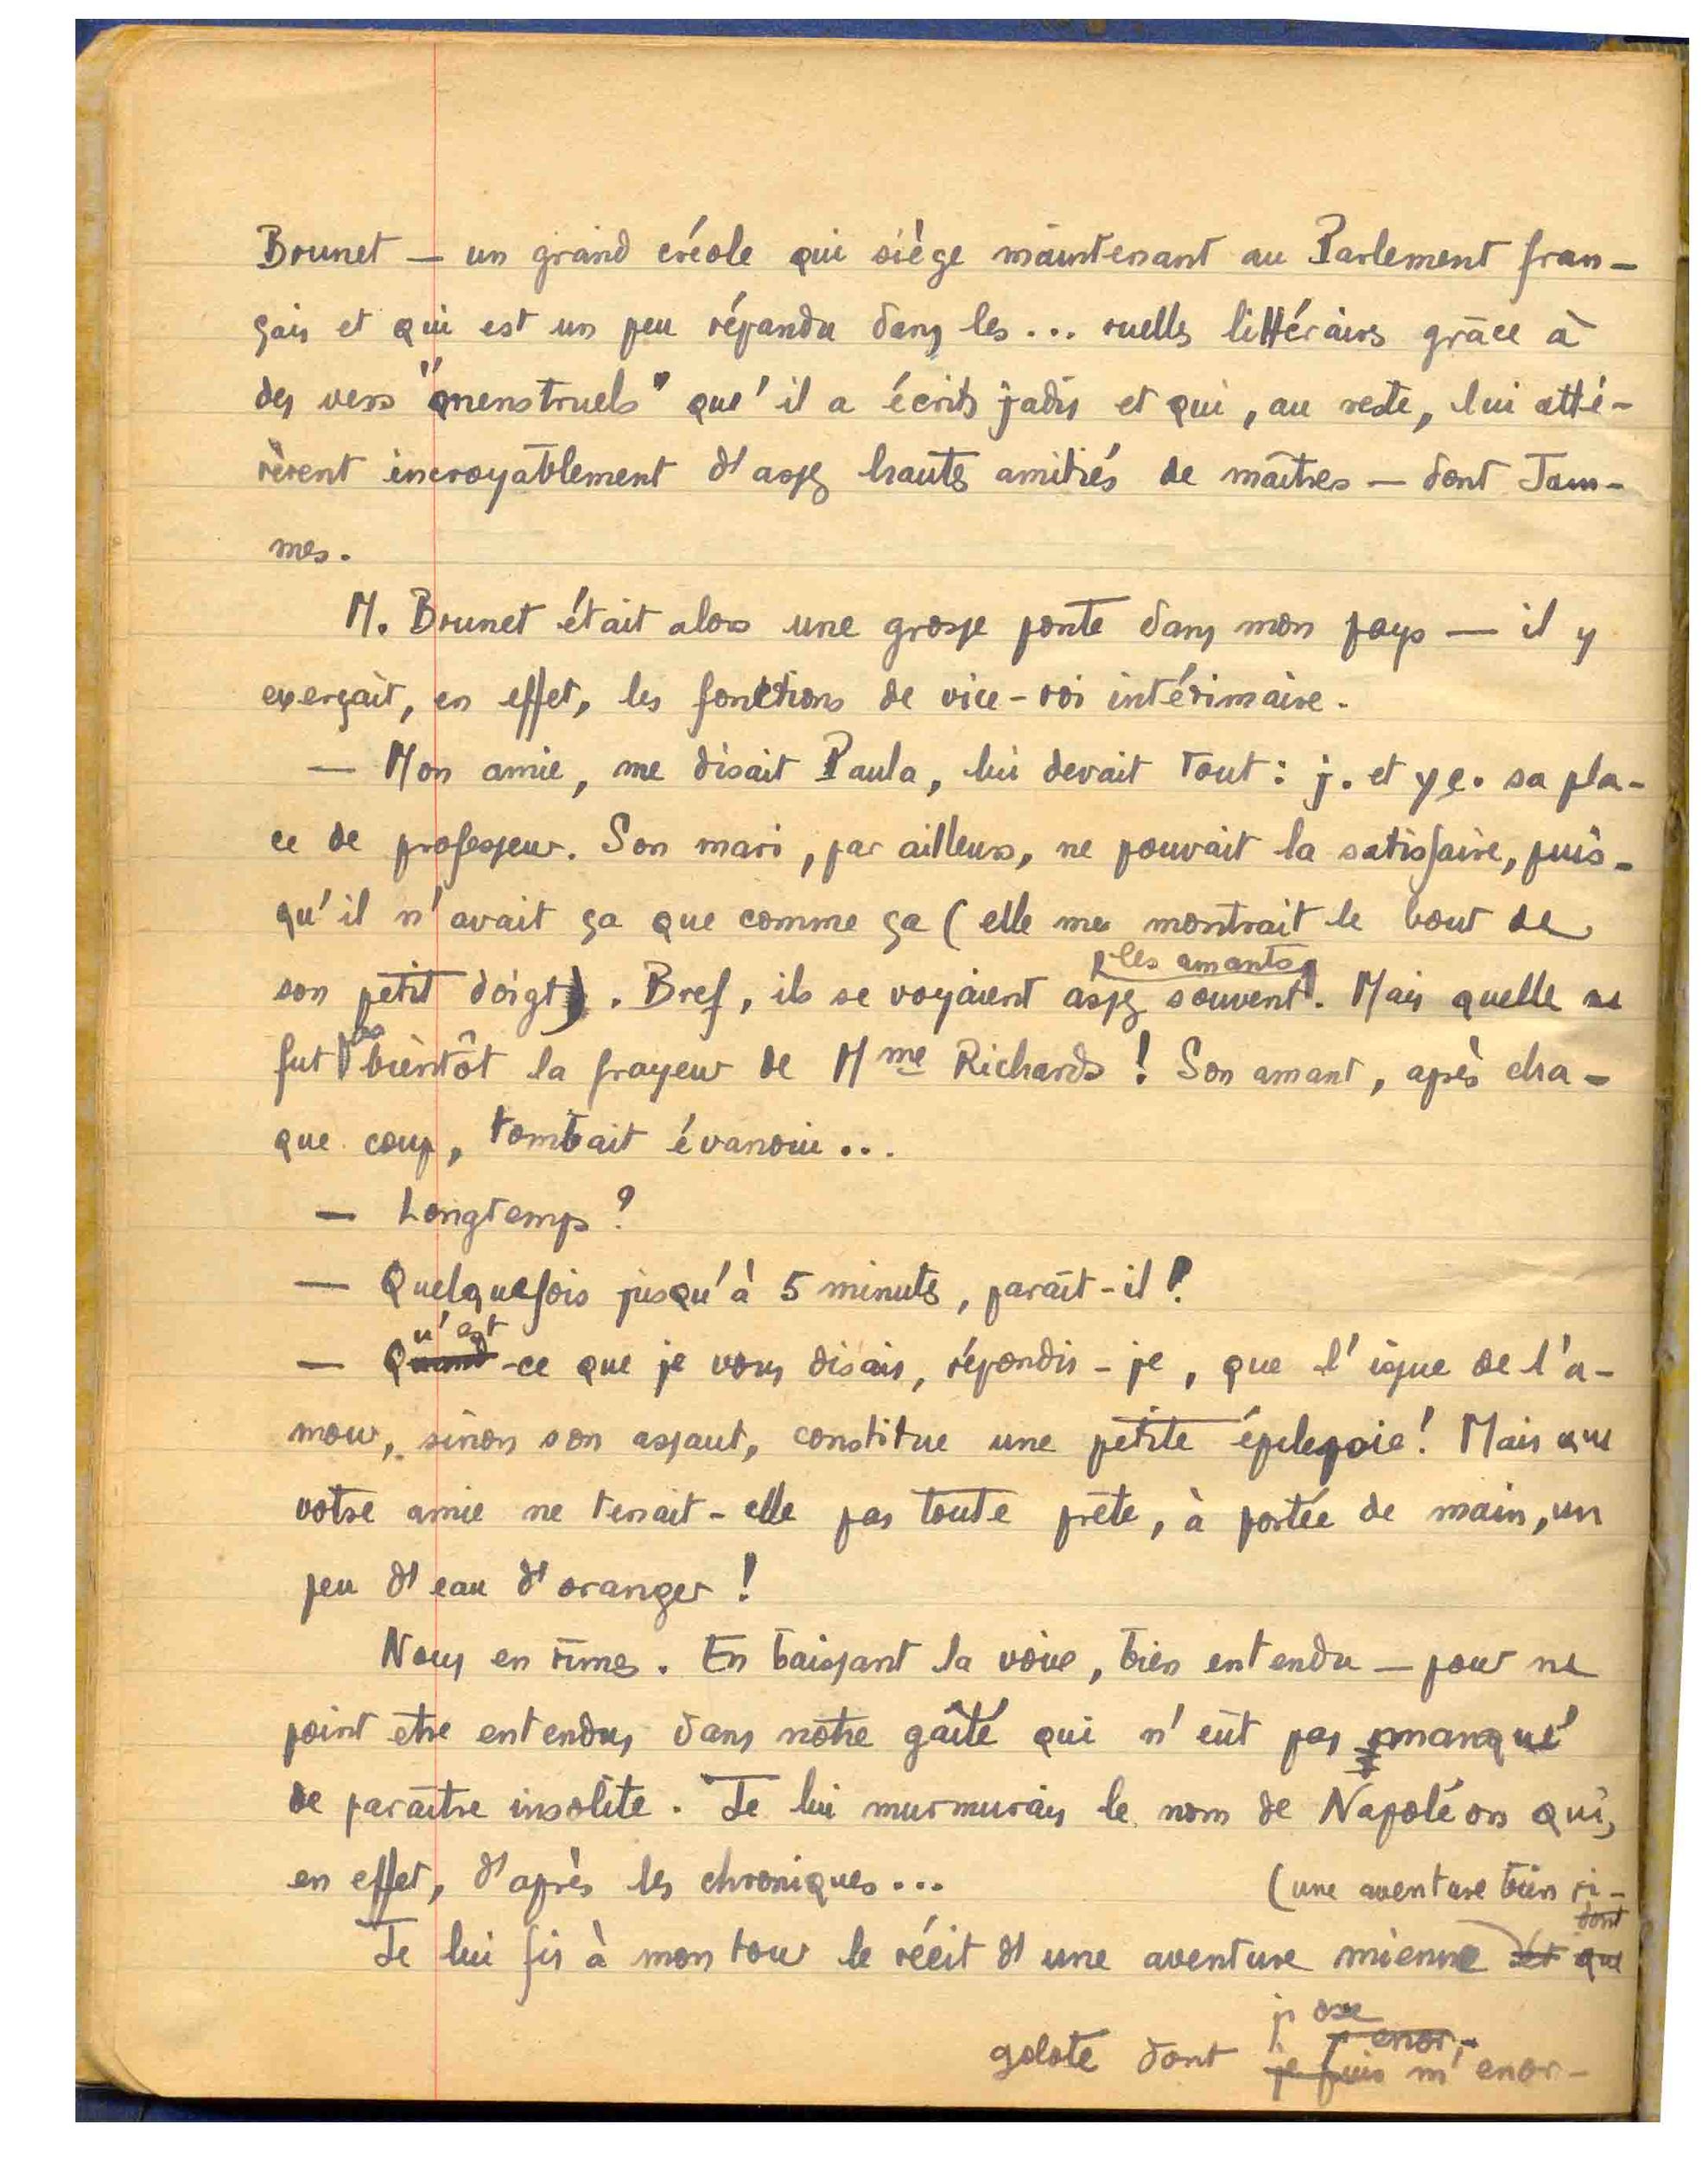 Brunet — un grand créole qui siège maintenant au Parlement fran-
çais et qui est un peu répandu dans les... ruelles littéraires grâce à
des vers "menstruels" qu'il a écrits jadis et qui, au reste, lui atti-
rèrent incroyablement d'assez hautes amitiés de maîtres — dont Jam-
mes.
M. Brunet était alors une grosse ponte dans mon pays — il y
exerçait, en effet, les fonctions de vice-roi intérimaire.
— Mon amie, me disait Paula, lui devait tout : j. et y ç. sa pla-
ce de professeur. Son mari, par ailleurs, ne pouvait la satisfaire, puis-
qu'il n'avait ça que comme ça (elle me montrait le bout de
les amants
son petit doigt). Bref, ils se voyaient assez souvent. Mais quelle ne
pas
fut bientôt la frayeur de Mme Richards ! Son amant, après cha-
que coup, tombait évanoui...
— Longtemps ?
— Quelquefois jusqu'à 5 minutes, paraît-il !
u'est
— Quand-ce que je vous disais, répondis-je, que l'issue de l'a-
mour, sinon son assaut, constitue une petite épilepsie ! Mais que
votre amie ne tenait-elle pas toute prête, à portée de main, un
peu d'eau d'oranger !
Nous en rîmes. En baissant la voix, bien entendu — pour ne
point être entendus dans notre gaîté qui n'eût pas manqué
de paraître insolite. Je lui murmurais le nom de Napoléon qui,
en effet, d'après les chroniques...
(une aventure bien ri-
dont
Je lui fis à mon tour le récit d'une aventure mienne et que
j'ose
golote dont je puis m'enor-